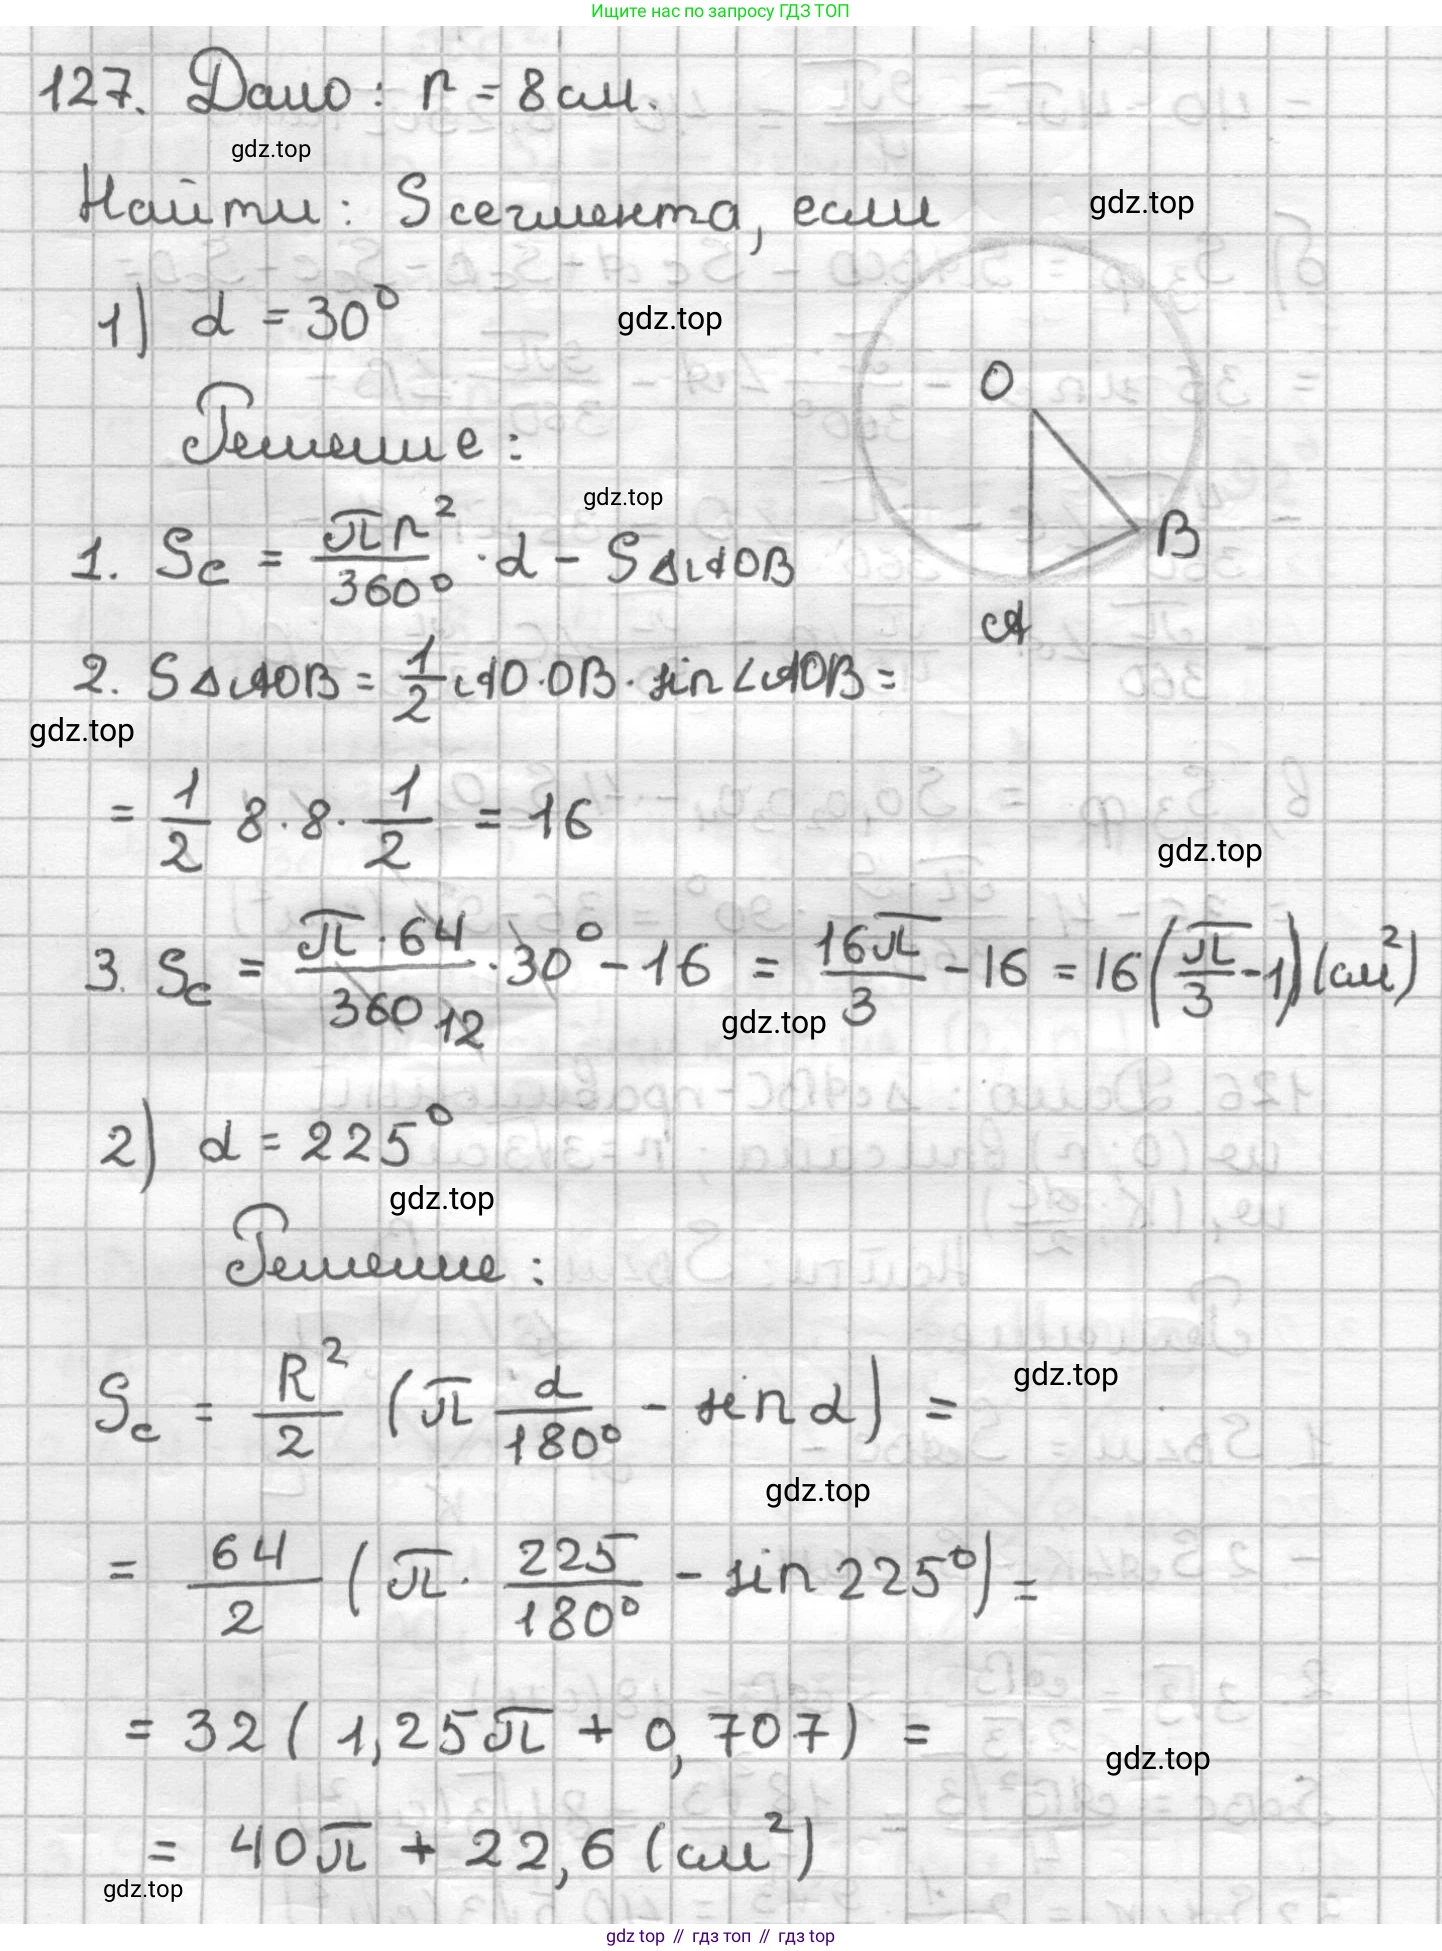 Ищите нас по запросу ГДЗ ТОП
127. Дано: r = 8 см.
gdz.top
Найти: S сегмента, если
gdz.top
1) α = 30°
gdz.top
O
Решение:
gdz.top
B
1. Sc = πr²/360° · α - S△AOB
A
2. S△AOB = 1/2 AO·OB· sin∠AOB =
gdz.top
= 1/2 8·8· 1/2 = 16
gdz.top
3. Sc = π·64/360 12 ·30° - 16 = 16π/3 - 16 = 16(π/3 - 1) (см²)
gdz.top
2) α = 225°
gdz.top
Решение:
Sc = R²/2 (π α/180° - sin α) =
gdz.top
gdz.top
= 64/2 (π· 225/180° - sin 225°) =
= 32 ( 1,25π + 0,707) =
gdz.top
= 40π + 22,6 (см²)
gdz.top
gdz top // гдз топ // гдз top